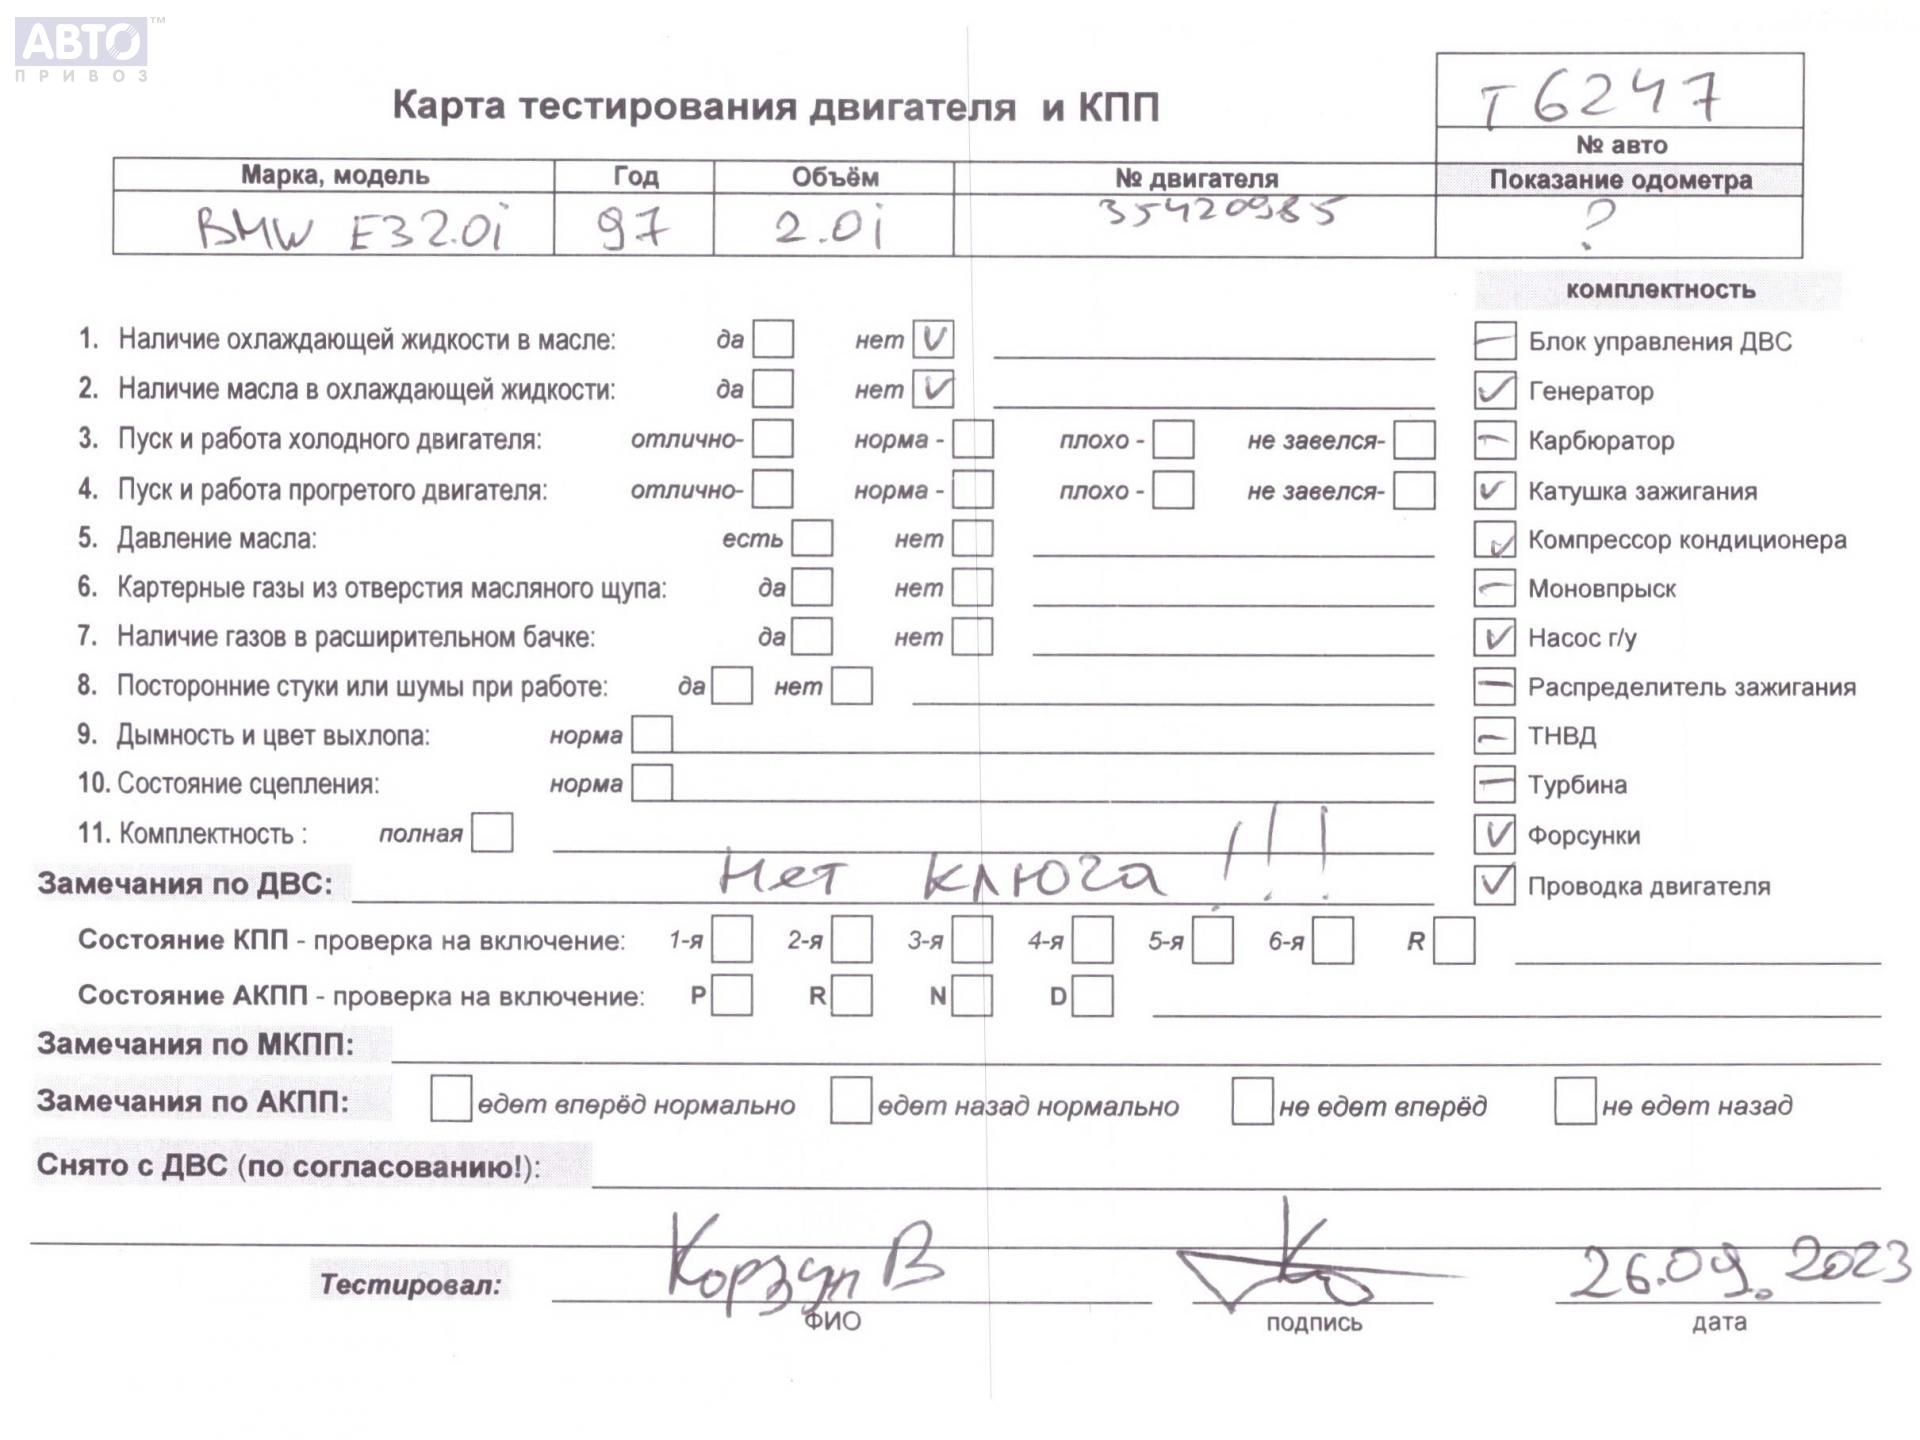 АВТО™
ПРИВОЗ
Карта тестирования двигателя и КПП
Т 6247
№ авто
Марка, модель Год Объём № двигателя Показание одометра
BMW E3 2.0i 97 2.0i 35420985 ?
комплектность
1. Наличие охлаждающей жидкости в масле: да нет V
Блок управления ДВС
2. Наличие масла в охлаждающей жидкости: да нет V
Генератор
3. Пуск и работа холодного двигателя: отлично- норма - плохо - не завелся-
Карбюратор
4. Пуск и работа прогретого двигателя: отлично- норма - плохо - не завелся-
Катушка зажигания
5. Давление масла: есть нет
Компрессор кондиционера
6. Картерные газы из отверстия масляного щупа: да нет
Моновпрыск
7. Наличие газов в расширительном бачке: да нет
Насос г/у
8. Посторонние стуки или шумы при работе: да нет
Распределитель зажигания
9. Дымность и цвет выхлопа: норма
ТНВД
10. Состояние сцепления: норма
Турбина
11. Комплектность : полная
Форсунки
Замечания по ДВС: Нет ключа !!!
Проводка двигателя
Состояние КПП - проверка на включение: 1-я 2-я 3-я 4-я 5-я 6-я R
Состояние АКПП - проверка на включение: P R N D
Замечания по МКПП:
Замечания по АКПП: едет вперёд нормально едет назад нормально не едет вперёд не едет назад
Снято с ДВС (по согласованию!):
Тестировал: Корзун В 26.09.2023
ФИО подпись дата